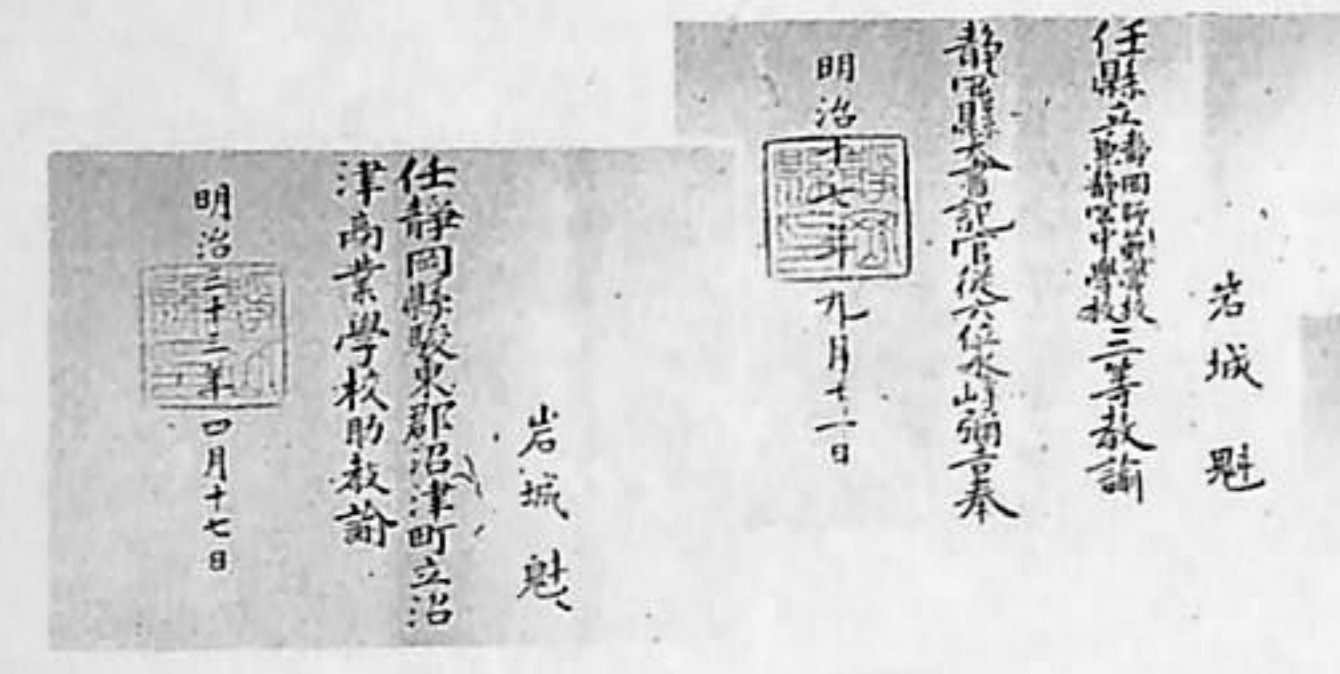 岩城 魁
任縣立靜岡師範學校兼靜岡中學校三等教諭
靜岡縣大書記官從六位水峰彌吉奉
明治十七年九月十二日
岩城 魁
任靜岡縣駿東郡沼津町立沼
津商業學校助教諭
明治三十二年四月十七日